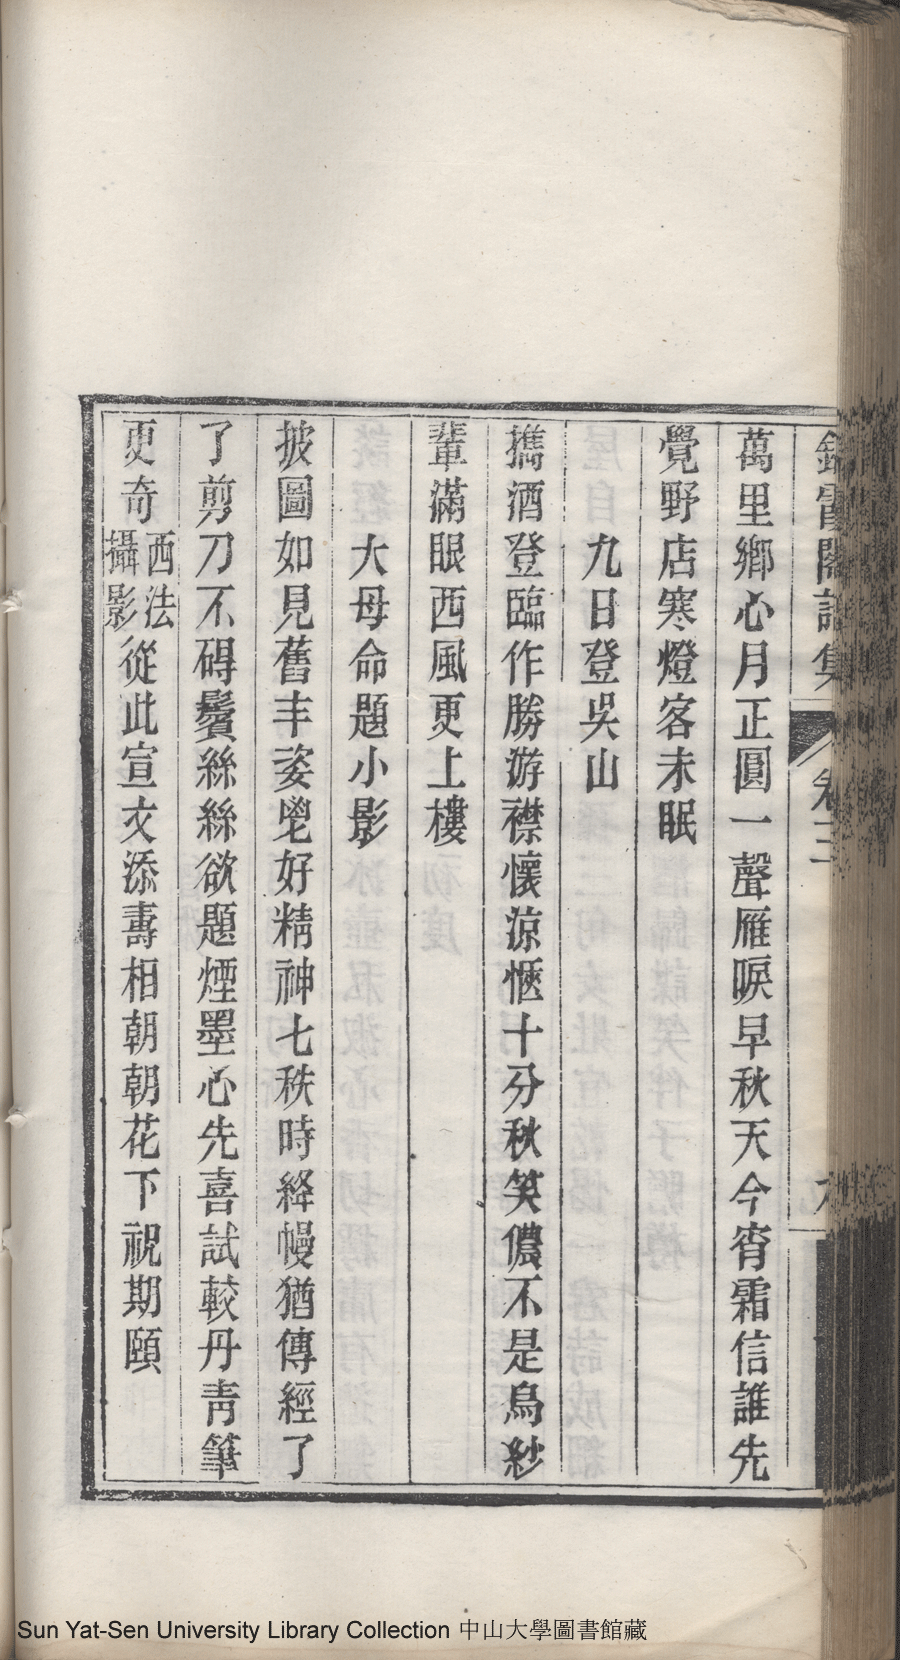 萬里鄉心月正圓一聲雁唳早秋天今宵霜信誰先
覺野店寒燈客未眠
九日登吳山
擕酒登臨作勝游襟懷涼愜十分秋笑儂不是烏紗
輩滿眼西風更上樓
大母命題小影
披圖如見舊丰姿皃好精神七秩時絳幔猶傳經了
了剪刀不碍鬢絲絲欲題煙墨心先喜試較丹靑筆
更奇西法攝影從此宣文添壽相朝朝花下祝期頤
Sun Yat-Sen University Library Collection 中山大學圖書館藏